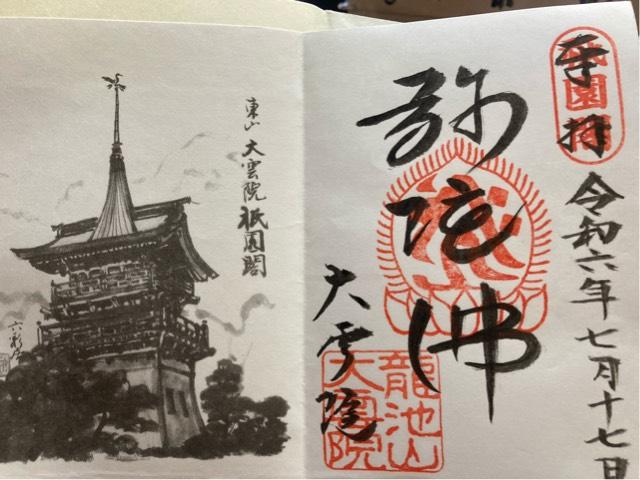 奉拝
祇園閣
令和六年七月十七日
弥陀佛
大雲院
龍池山
大雲院
東山 大雲院 祇園閣